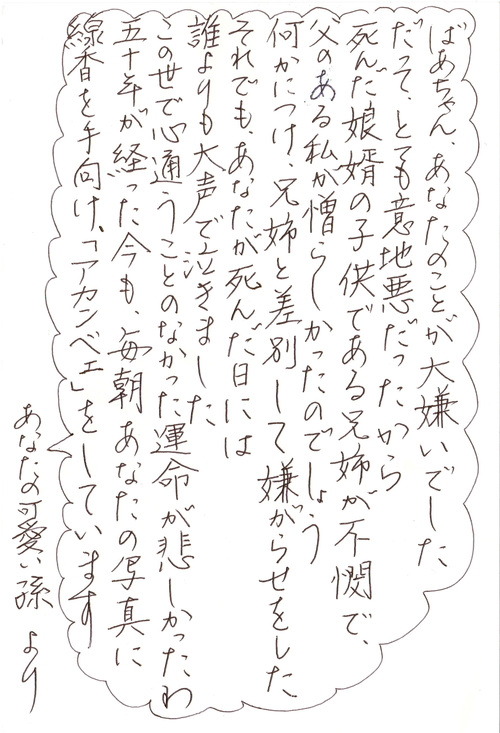 ばあちゃん、あなたのことが大嫌いでした
だって、とても意地悪だったから
死んだ娘婿の子供である兄姉が不憫で、
父のある私が憎らしかったのでしょう
何かにつけ、兄姉と差別して嫌がらせをした
それでも、あなたが死んだ日には
誰よりも大声で泣きました
この世で心通うことのなかった運命が悲しかったわ
五十年が経った今も、毎朝あなたの写真に
線香を手向け、「アカンベェ」をしています
あなたの可愛い孫 より